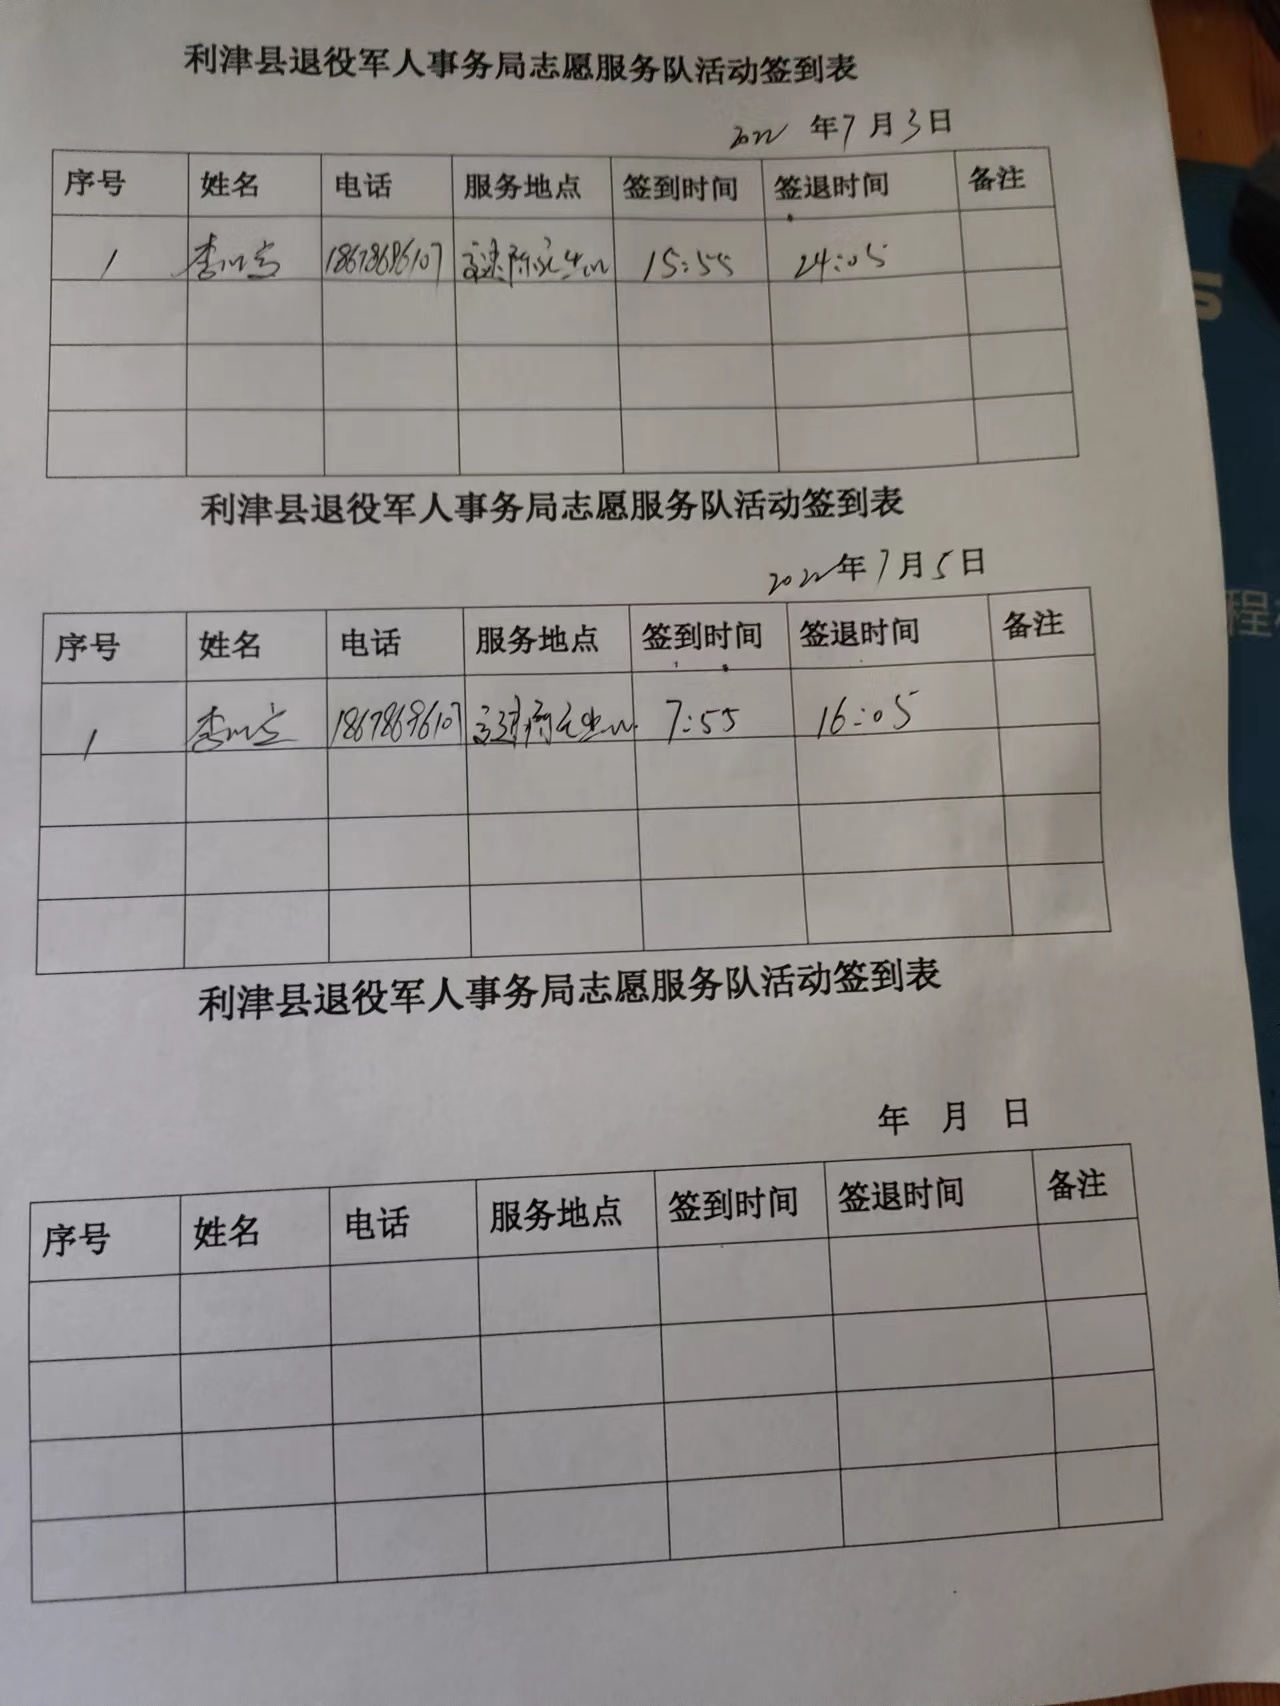 利津县退役军人事务局志愿服务队活动签到表
2022 年 7 月 3 日
序号 姓名 电话 服务地点 签到时间 签退时间 备注
1 李 18678696107 高速 15:55 24:05
利津县退役军人事务局志愿服务队活动签到表
2022 年 7 月 5 日
序号 姓名 电话 服务地点 签到时间 签退时间 备注
1 李 18678696107 高速 7:55 16:05
利津县退役军人事务局志愿服务队活动签到表
年 月 日
序号 姓名 电话 服务地点 签到时间 签退时间 备注
程